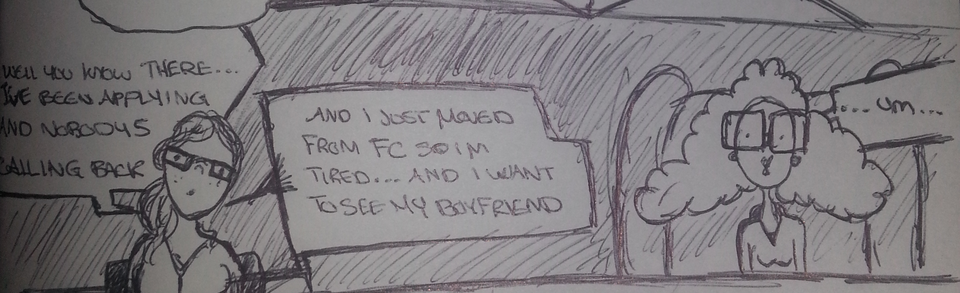 WELL YOU KNOW THERE...
I'VE BEEN APPLYING
AND NOBODYS
CALLING BACK
AND I JUST MOVED
FROM FC SO IM
TIRED... AND I WANT
TO SEE MY BOYFRIEND
... UM...